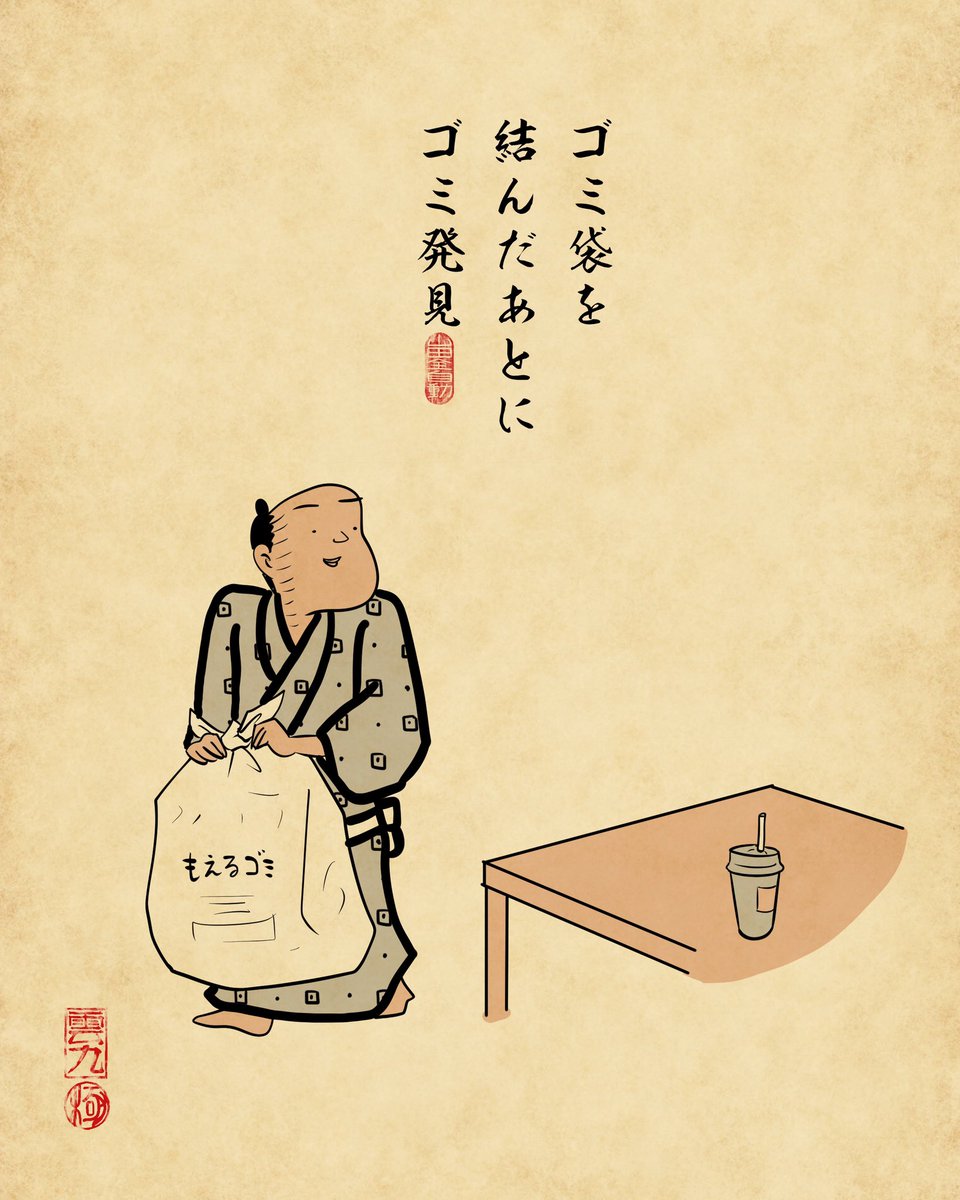 ゴミ袋を
結んだあとに
ゴミ発見
もえるゴミ